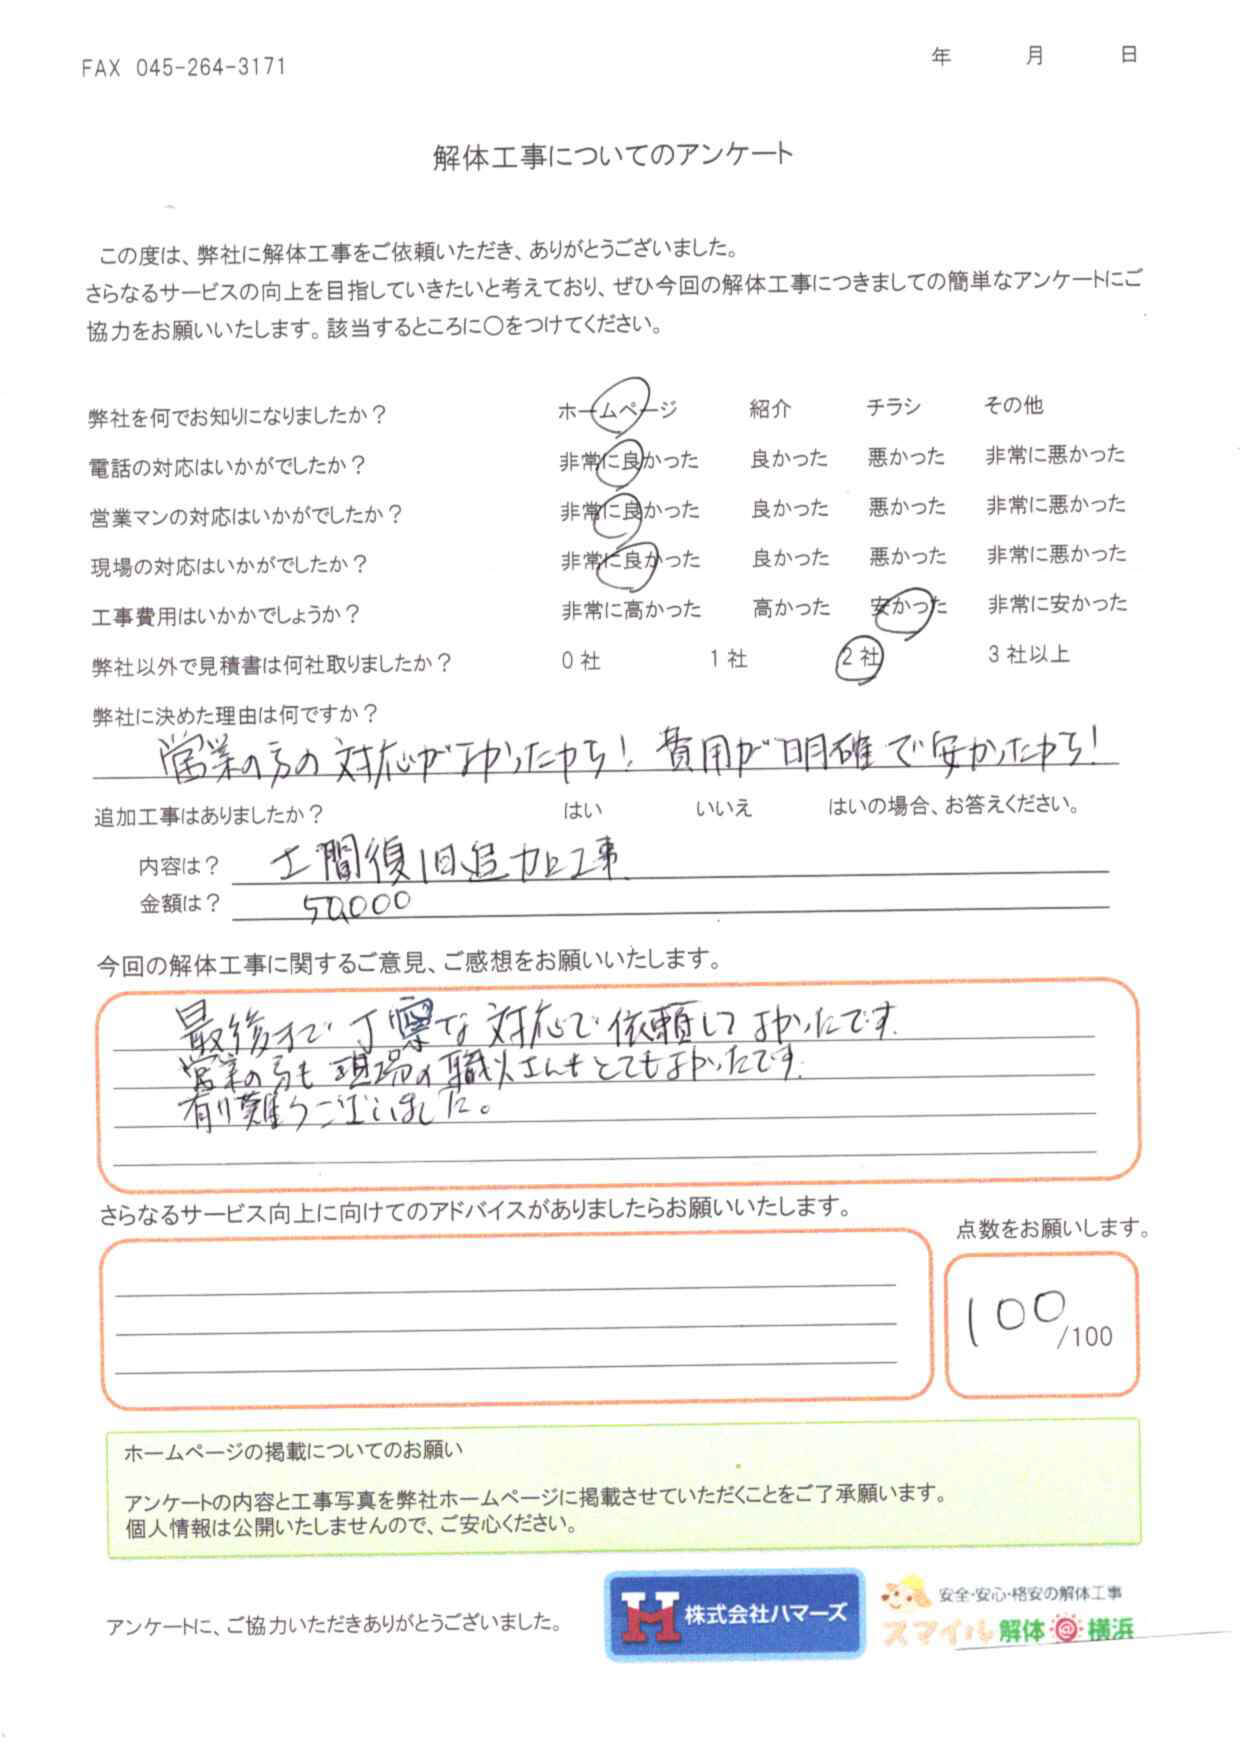 FAX 045-264-3171
年 月 日
解体工事についてのアンケート
この度は、弊社に解体工事をご依頼いただき、ありがとうございました。
さらなるサービスの向上を目指していきたいと考えており、ぜひ今回の解体工事につきましての簡単なアンケートにご
協力をお願いいたします。該当するところに○をつけてください。
弊社を何でお知りになりましたか？ ホームページ 紹介 チラシ その他
電話の対応はいかがでしたか？ 非常に良かった 良かった 悪かった 非常に悪かった
営業マンの対応はいかがでしたか？ 非常に良かった 良かった 悪かった 非常に悪かった
現場の対応はいかがでしたか？ 非常に良かった 良かった 悪かった 非常に悪かった
工事費用はいかかでしょうか？ 非常に高かった 高かった 安かった 非常に安かった
弊社以外で見積書は何社取りましたか？ 0社 1社 2社 3社以上
弊社に決めた理由は何ですか？
営業の方の対応がよかったから！費用が明確で安かったから！
追加工事はありましたか？ はい いいえ はいの場合、お答えください。
内容は？ 土間復旧追加工事
金額は？ 50,000
今回の解体工事に関するご意見、ご感想をお願いいたします。
最後まで丁寧な対応で依頼してよかったです。
営業の方も現場の職人さんもとてもよかったです。
有り難うございました。
さらなるサービス向上に向けてのアドバイスがありましたらお願いいたします。
点数をお願いします。
100/100
ホームページの掲載についてのお願い
アンケートの内容と工事写真を弊社ホームページに掲載させていただくことをご了承願います。
個人情報は公開いたしませんので、ご安心ください。
アンケートに、ご協力いただきありがとうございました。
H 株式会社ハマーズ
安全・安心・格安の解体工事
スマイル解体@横浜